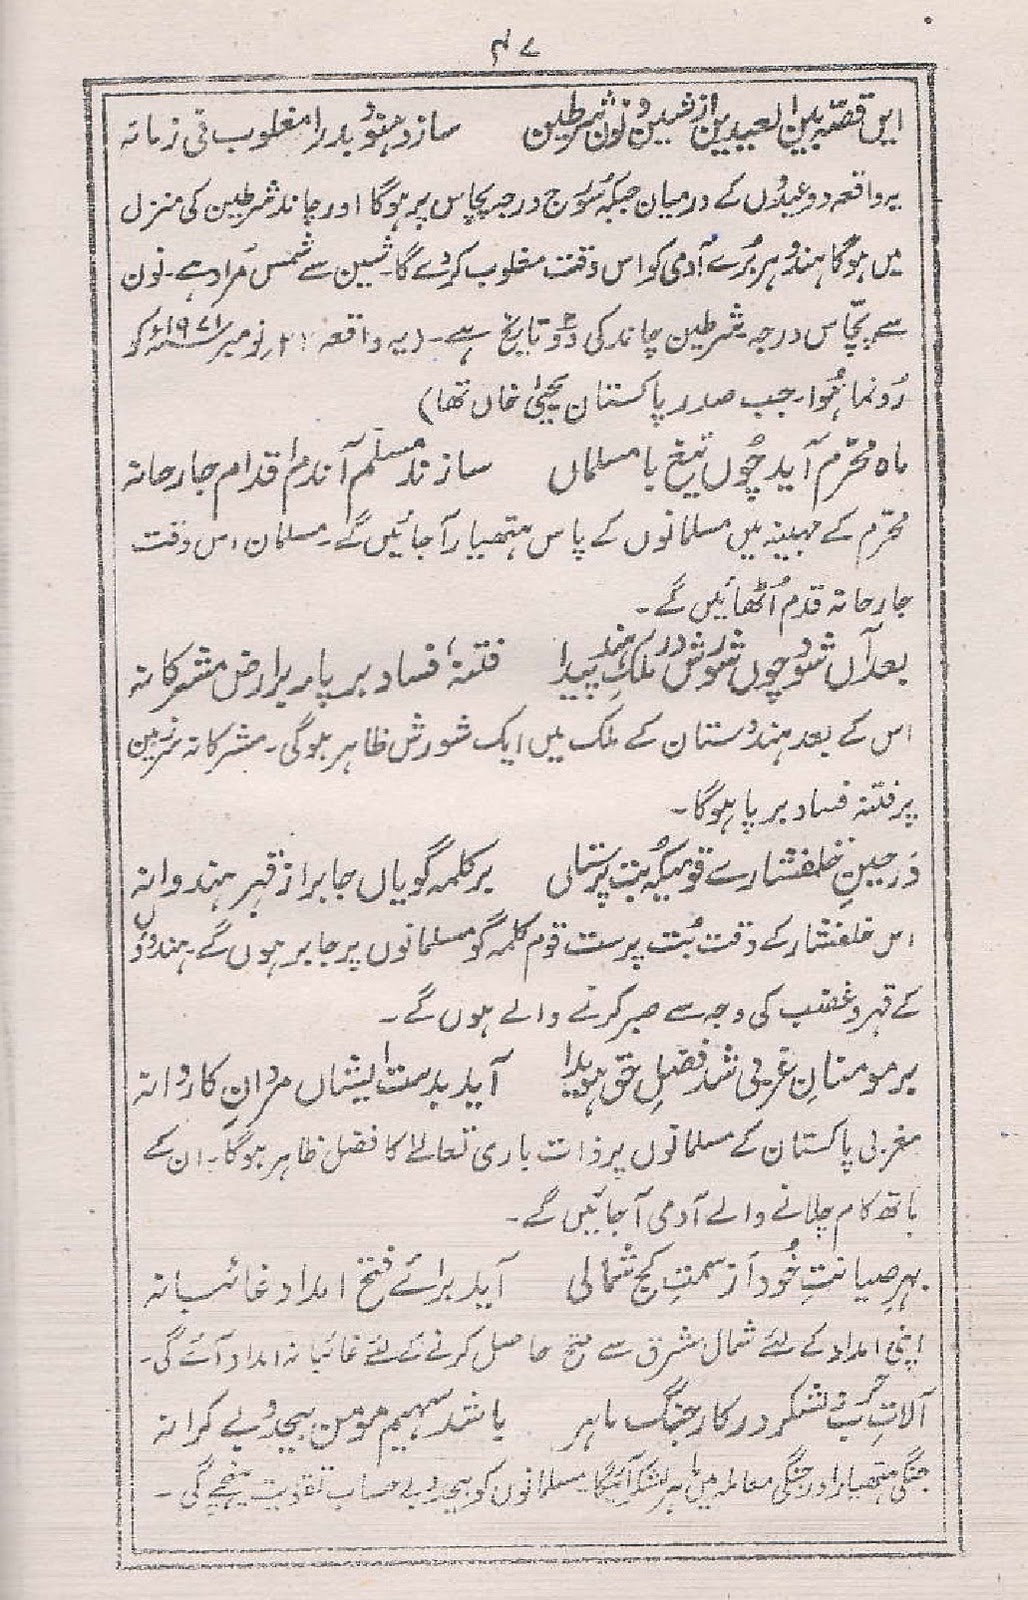 ۴۷
ایں قصّہ بین العیدین از شین و نون شرطین سازد ہنود بدرا مغلوب فی زمانہ
یہ واقعہ دو عیدوں کے درمیان جبکہ سُورج درجہ پچاس پر ہوگا اور چاند شرطین کی منزل
میں ہوگا ہندُو ہر بُرے آدمی کو اس وقت مغلوب کر دے گا۔ شین سے شمس مُراد ہے۔ نون
سے پچّاس درجہ۔ شرطین چاند کی دو تاریخ ہے۔ (یہ واقعہ ۲۱ر نومبر ۱۹۷۱ء کو
رُونما ہُوا۔ جب صدر پاکستان یحییٰ خاں تھا)
ماہ محرّم آید چُوں تیغ با مسلماں سازند مسلم آندم اقدام جارحانہ
محرّم کے مہینہ میں مسلمانوں کے پاس ہتھیار آجائیں گے۔ مسلمان اس وقت
جارحانہ قدم اُٹھائیں گے۔
بعد آں شود چوں شورش در ملکِ ہند پیدا فتنہ فساد برپا بر ارض مشرکانہ
اس کے بعد ہندُوستان کے ملک میں ایک شورش ظاہر ہوگی۔ مشرکانہ سرزمین
پر فتنہ فساد برپا ہوگا۔
دَر حینِ خلفشارے قومیکہ بُت پرستاں بر کلمہ گویاں جابر از قہرِ ہندوانہ
اس خلفشار کے وقت بُت پرست قوم کلمہ گو مسلمانوں پر جابر ہوں گے۔ ہندوؤں
کے قہر و غضب کی وجہ سے صبر کرنے والے ہوں گے۔
بر مومنانِ غربی شد فضلِ حق ہویدا آید بدست ایشاں مردانِ کاروانہ
مغربی پاکستان کے مسلمانوں پر ذات باری تعالےٰ کا فضل ظاہر ہوگا۔ ان کے
ہاتھ کام چلانے والے آدمی آجائیں گے۔
بہرِ صیانتِ خُود از سمتِ کج شمالی آید برائے فتح امداد غائبانہ
اپنی امداد کے لئے شمال مشرق سے فتح حاصل کرنے کے لئے غائبانہ امداد آئے گی۔
آلاتِ حرب و لشکر در کار جنگ ماہر باشد سہیم مومن بیحد و بے کرانہ
جنگی ہتھیار اور جنگی معاملہ میں ماہر لشکر آئیگا۔ مسلمانوں کو بیحد و بے حساب تقویت پہنچے گی۔